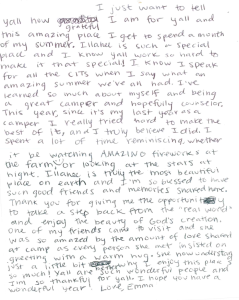 I just want to tell
yall how grateful I am for yall and
this amazing place I get to spend a month
of my summer. is such a special
place and I know yall work so hard to
make it that special! I know I speak
for all the CITs when I say what an
amazing summer we've had! I've
learned so much about myself and being
a great camper and hopefully counselor.
This year, since it's my last year as a
camper I really tried hard to make the
best of it, and I truly believe I did. I
spent a lot of time reminiscing, whether
it be watching AMAZING fireworks at
the farm, or looking at the stars at
night. is truly the most beautiful
place on earth and I'm so blessed to have
such good friends and memories shared here.
Thank you for giving me the opportunity
to take a step back from the "real world"
and enjoy the beauty of God's creation.
One of my friends came to visit and she
was so amazed by the amount of love shared
at camp as every person she met insisted on
greeting with a warm hug. She now understands
just a little bit why I enjoy this place
so much! Yall are such wonderful people and
I'm so thankful for yall. I hope you have a
wonderful year! Love, Emma